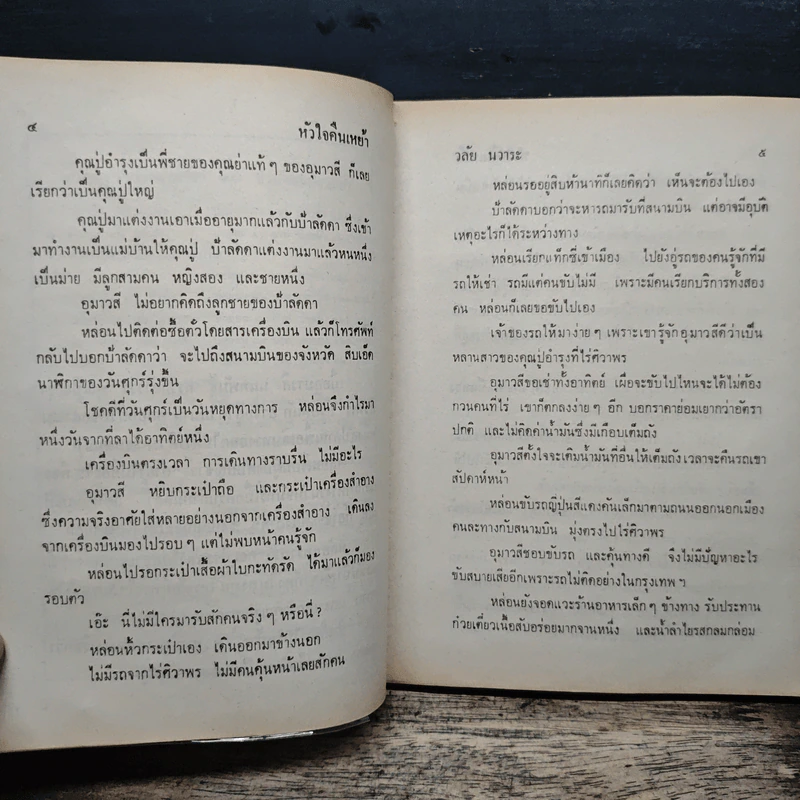 ๔
หัวใจคืนเหย้า
คุณปู่อำรุงเป็นพี่ชายของคุณย่าแท้ ๆ ของอุมาวสี ก็เลย
เรียกว่าเป็นคุณปู่ใหญ่
คุณปู่มาแต่งงานเอาเมื่ออายุมากแล้วกับป้าลัดดา ซึ่งเข้า
มาทำงานเป็นแม่บ้านให้คุณปู่ ป้าลัดดาแต่งงานมาแล้วหนหนึ่ง
เป็นม่าย มีลูกสามคน หญิงสอง และชายหนึ่ง
อุมาวสี ไม่อยากคิดถึงลูกชายของป้าลัดดา
หล่อนไปติดต่อซื้อตั๋วโดยสารเครื่องบิน แล้วก็โทรศัพท์
กลับไปบอกป้าลัดดาว่า จะไปถึงสนามบินของจังหวัด สิบเอ็ด
นาฬิกาของวันศุกร์รุ่งขึ้น
โชคดีที่วันศุกร์เป็นวันหยุดทางการ หล่อนจึงกำไรมา
หนึ่งวันจากที่ลาได้อาทิตย์หนึ่ง
เครื่องบินตรงเวลา การเดินทางราบรื่น ไม่มีอะไร
อุมาวสี หยิบกระเป๋าถือ และกระเป๋าเครื่องสำอาง
ซึ่งความจริงอาศัยใส่หลายอย่างนอกจากเครื่องสำอาง เดินลง
จากเครื่องบินมองไปรอบ ๆ แต่ไม่พบหน้าคนรู้จัก
หล่อนไปรอกระเป๋าเสื้อผ้าใบกะทัดรัด ได้มาแล้วก็มอง
รอบตัว
เอ๊ะ นี่ไม่มีใครมารับสักคนจริง ๆ หรือนี่ ?
หล่อนหิ้วกระเป๋าเอง เดินออกมาข้างนอก
ไม่มีรถจากไร่ศิวาพร ไม่มีคนคุ้นหน้าเลยสักคน
วลัย นวาระ
๕
หล่อนรออยู่สิบห้านาทีก็เลยคิดว่า เห็นจะต้องไปเอง
ป้าลัดดาบอกว่าจะหารถมารับที่สนามบิน แต่อาจมีอุบัติ
เหตุอะไรก็ได้ระหว่างทาง
หล่อนเรียกแท็กซี่เข้าเมือง ไปยังอู่รถของคนรู้จักที่มี
รถให้เช่า รถมีแต่คนขับไม่มี เพราะมีคนเรียกบริการทั้งสอง
คน หล่อนก็เลยขอขับไปเอง
เจ้าของรถให้มาง่าย ๆ เพราะเขารู้จักอุมาวสีดีว่าเป็น
หลานสาวของคุณปู่อำรุงที่ไร่ศิวาพร
อุมาวสีขอเช่าทั้งอาทิตย์ เผื่อจะขับไปไหนจะได้ไม่ต้อง
กวนคนที่ไร่ เขาก็ตกลงง่าย ๆ อีก บอกราคาย่อมเยากว่าอัตรา
ปกติ และไม่คิดค่าน้ำมันซึ่งมีเกือบเต็มถัง
อุมาวสีตั้งใจจะเติมน้ำมันที่อื่นให้เต็มถังเวลาจะคืนรถเขา
สัปดาห์หน้า
หล่อนขับรถญี่ปุ่นสีแดงคันเล็กมาตามถนนออกนอกเมือง
คนละทางกับสนามบิน มุ่งตรงไปไร่ศิวาพร
อุมาวสีชอบขับรถ และคุ้นทางดี จึงไม่มีปัญหาอะไร
ขับสบายเสียอีกเพราะรถไม่ติดอย่างในกรุงเทพ ฯ
หล่อนยังจอดแวะร้านอาหารเล็ก ๆ ข้างทาง รับประทาน
ก๋วยเตี๋ยวเนื้อสับอร่อยมากจานหนึ่ง และน้ำลำไยรสกลมกล่อม